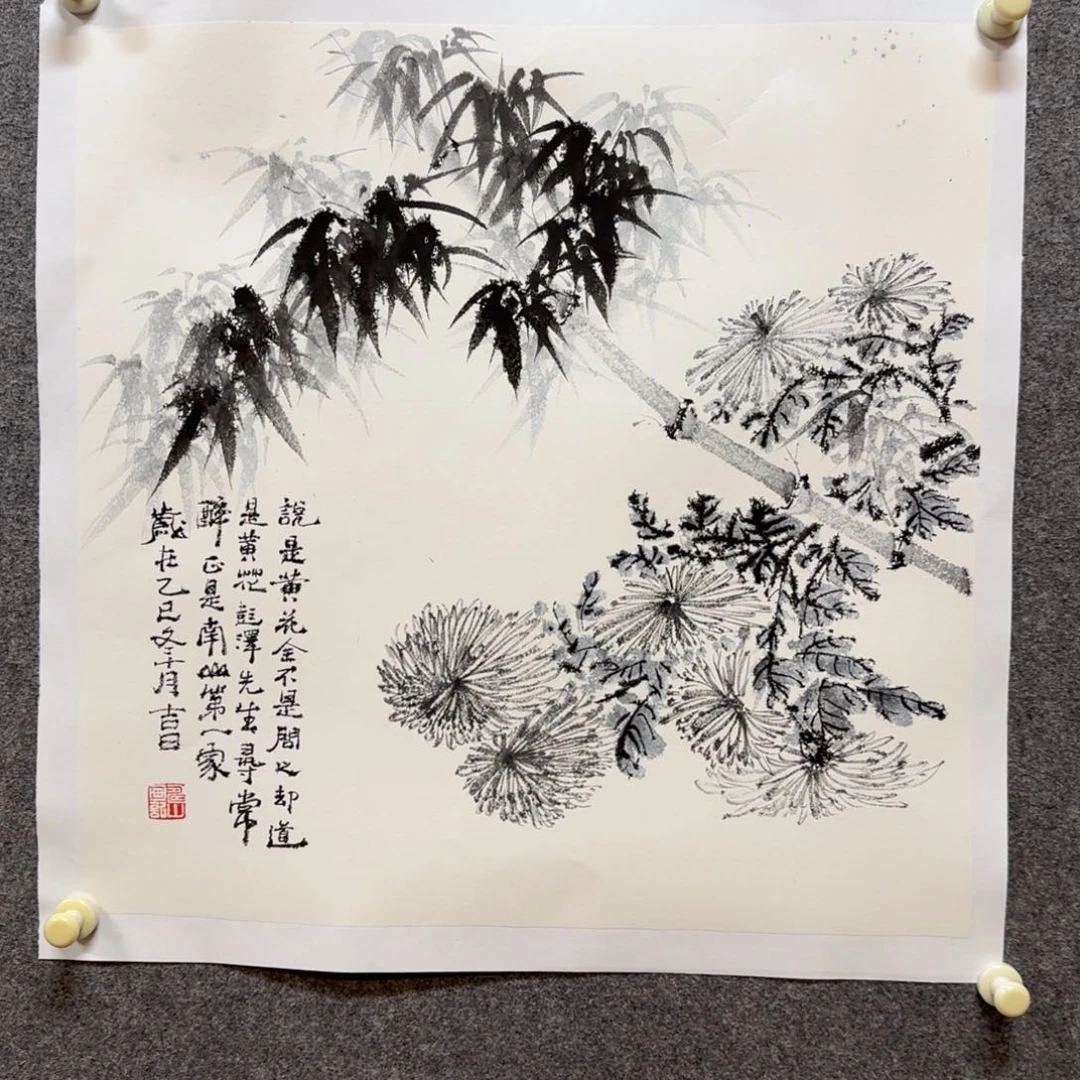 說是黃花全不是問也却道
是黃花彭澤先生尋常
醉正是南山第一家
歲在乙巳冬十月吉日